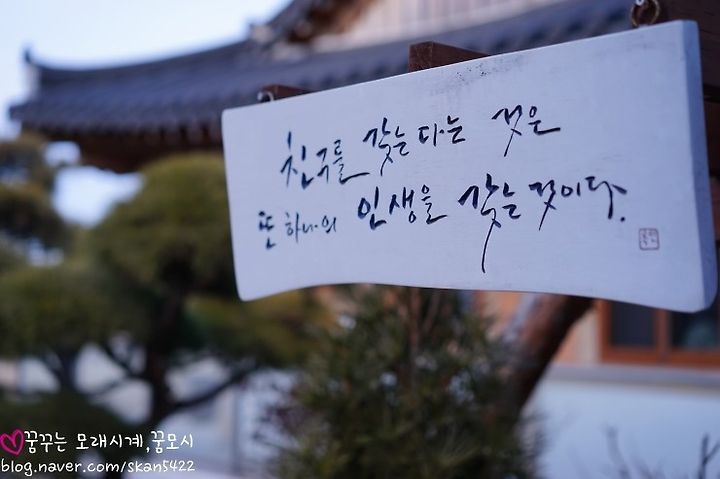 친구를 갖는다는 것은
또 하나의 인생을 갖는 것이다.
꿈꾸는 모래시계,꿈모시
blog.naver.com/skan5422